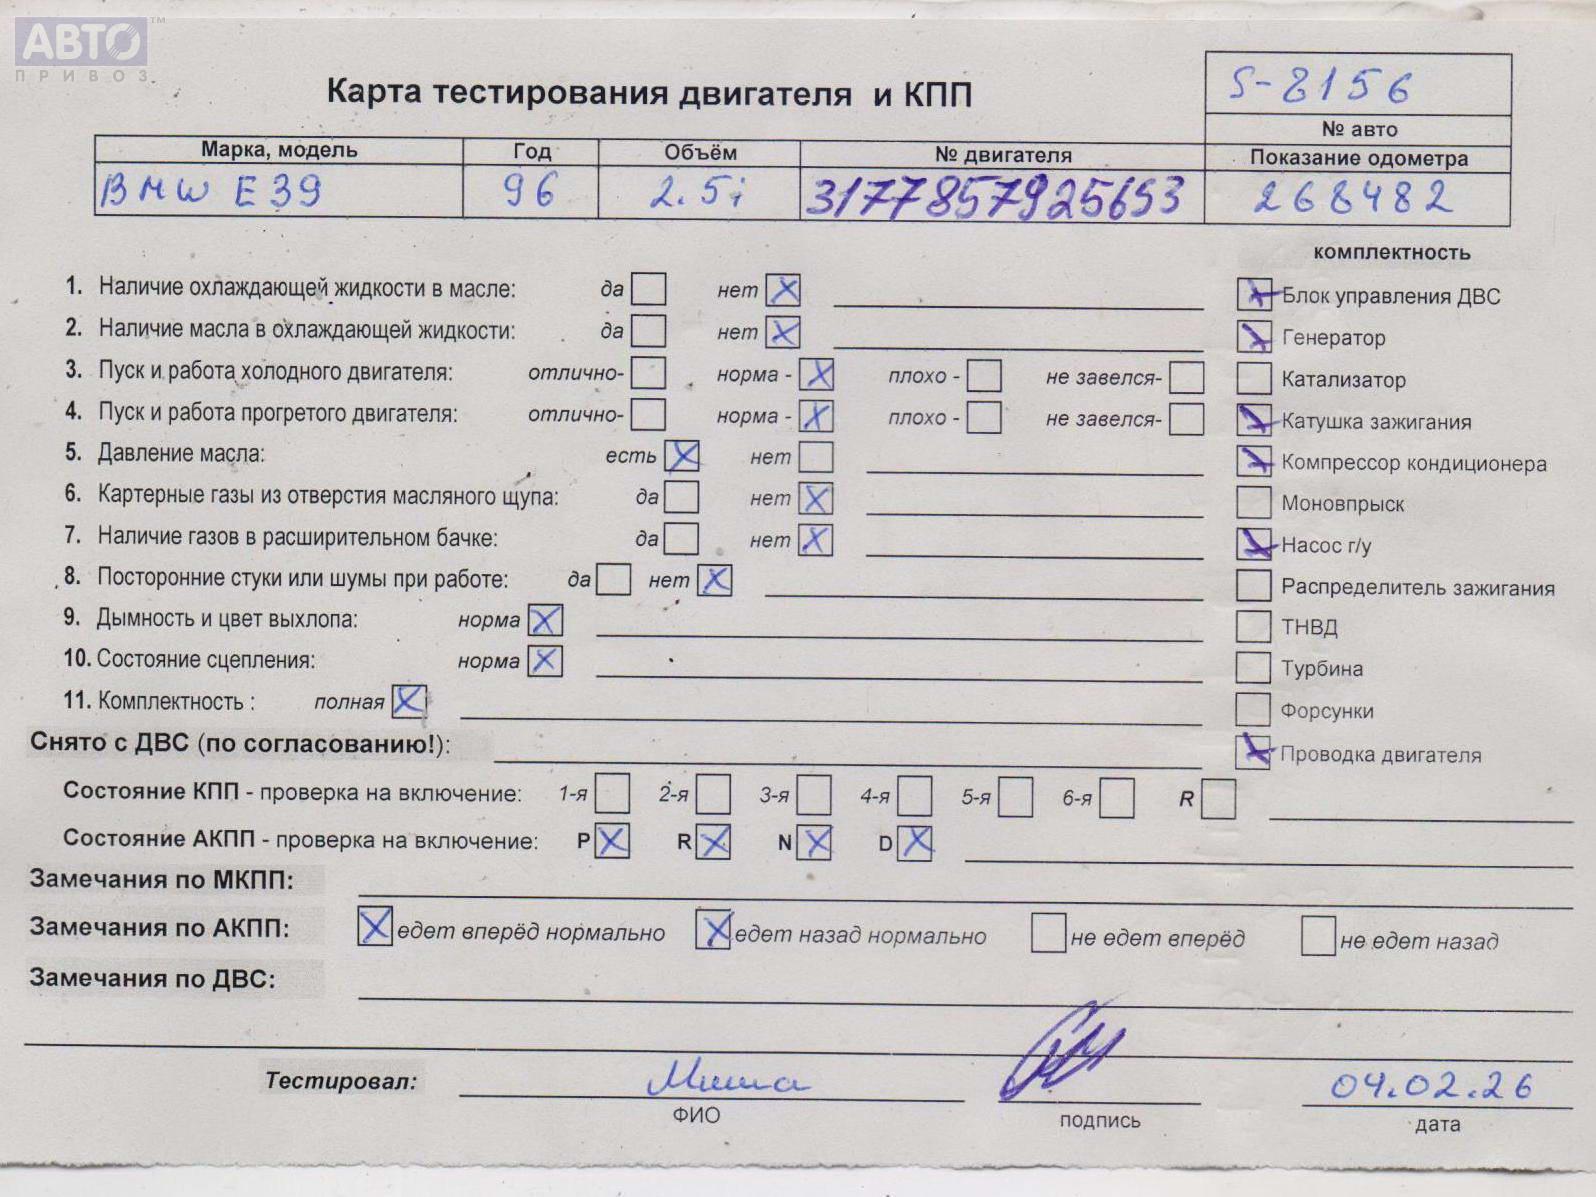 АВТО™
ПРИВОЗ
Карта тестирования двигателя и КПП
S-8156
№ авто
Марка, модель Год Объём № двигателя Показание одометра
BMW E39 96 2.5i 3177857925653 268482
комплектность
1. Наличие охлаждающей жидкости в масле: да нет X
2. Наличие масла в охлаждающей жидкости: да нет X
3. Пуск и работа холодного двигателя: отлично- норма - X плохо - не завелся-
4. Пуск и работа прогретого двигателя: отлично- норма - X плохо - не завелся-
5. Давление масла: есть X нет
6. Картерные газы из отверстия масляного щупа: да нет X
7. Наличие газов в расширительном бачке: да нет X
8. Посторонние стуки или шумы при работе: да нет X
9. Дымность и цвет выхлопа: норма X
10. Состояние сцепления: норма X
11. Комплектность : полная X
X Блок управления ДВС
X Генератор
Катализатор
X Катушка зажигания
X Компрессор кондиционера
Моновпрыск
X Насос г/у
Распределитель зажигания
ТНВД
Турбина
Форсунки
X Проводка двигателя
Снято с ДВС (по согласованию!):
Состояние КПП - проверка на включение: 1-я 2-я 3-я 4-я 5-я 6-я R
Состояние АКПП - проверка на включение: P X R X N X D X
Замечания по МКПП:
Замечания по АКПП: X едет вперёд нормально X едет назад нормально не едет вперёд не едет назад
Замечания по ДВС:
Тестировал: Миша 04.02.26
ФИО подпись дата